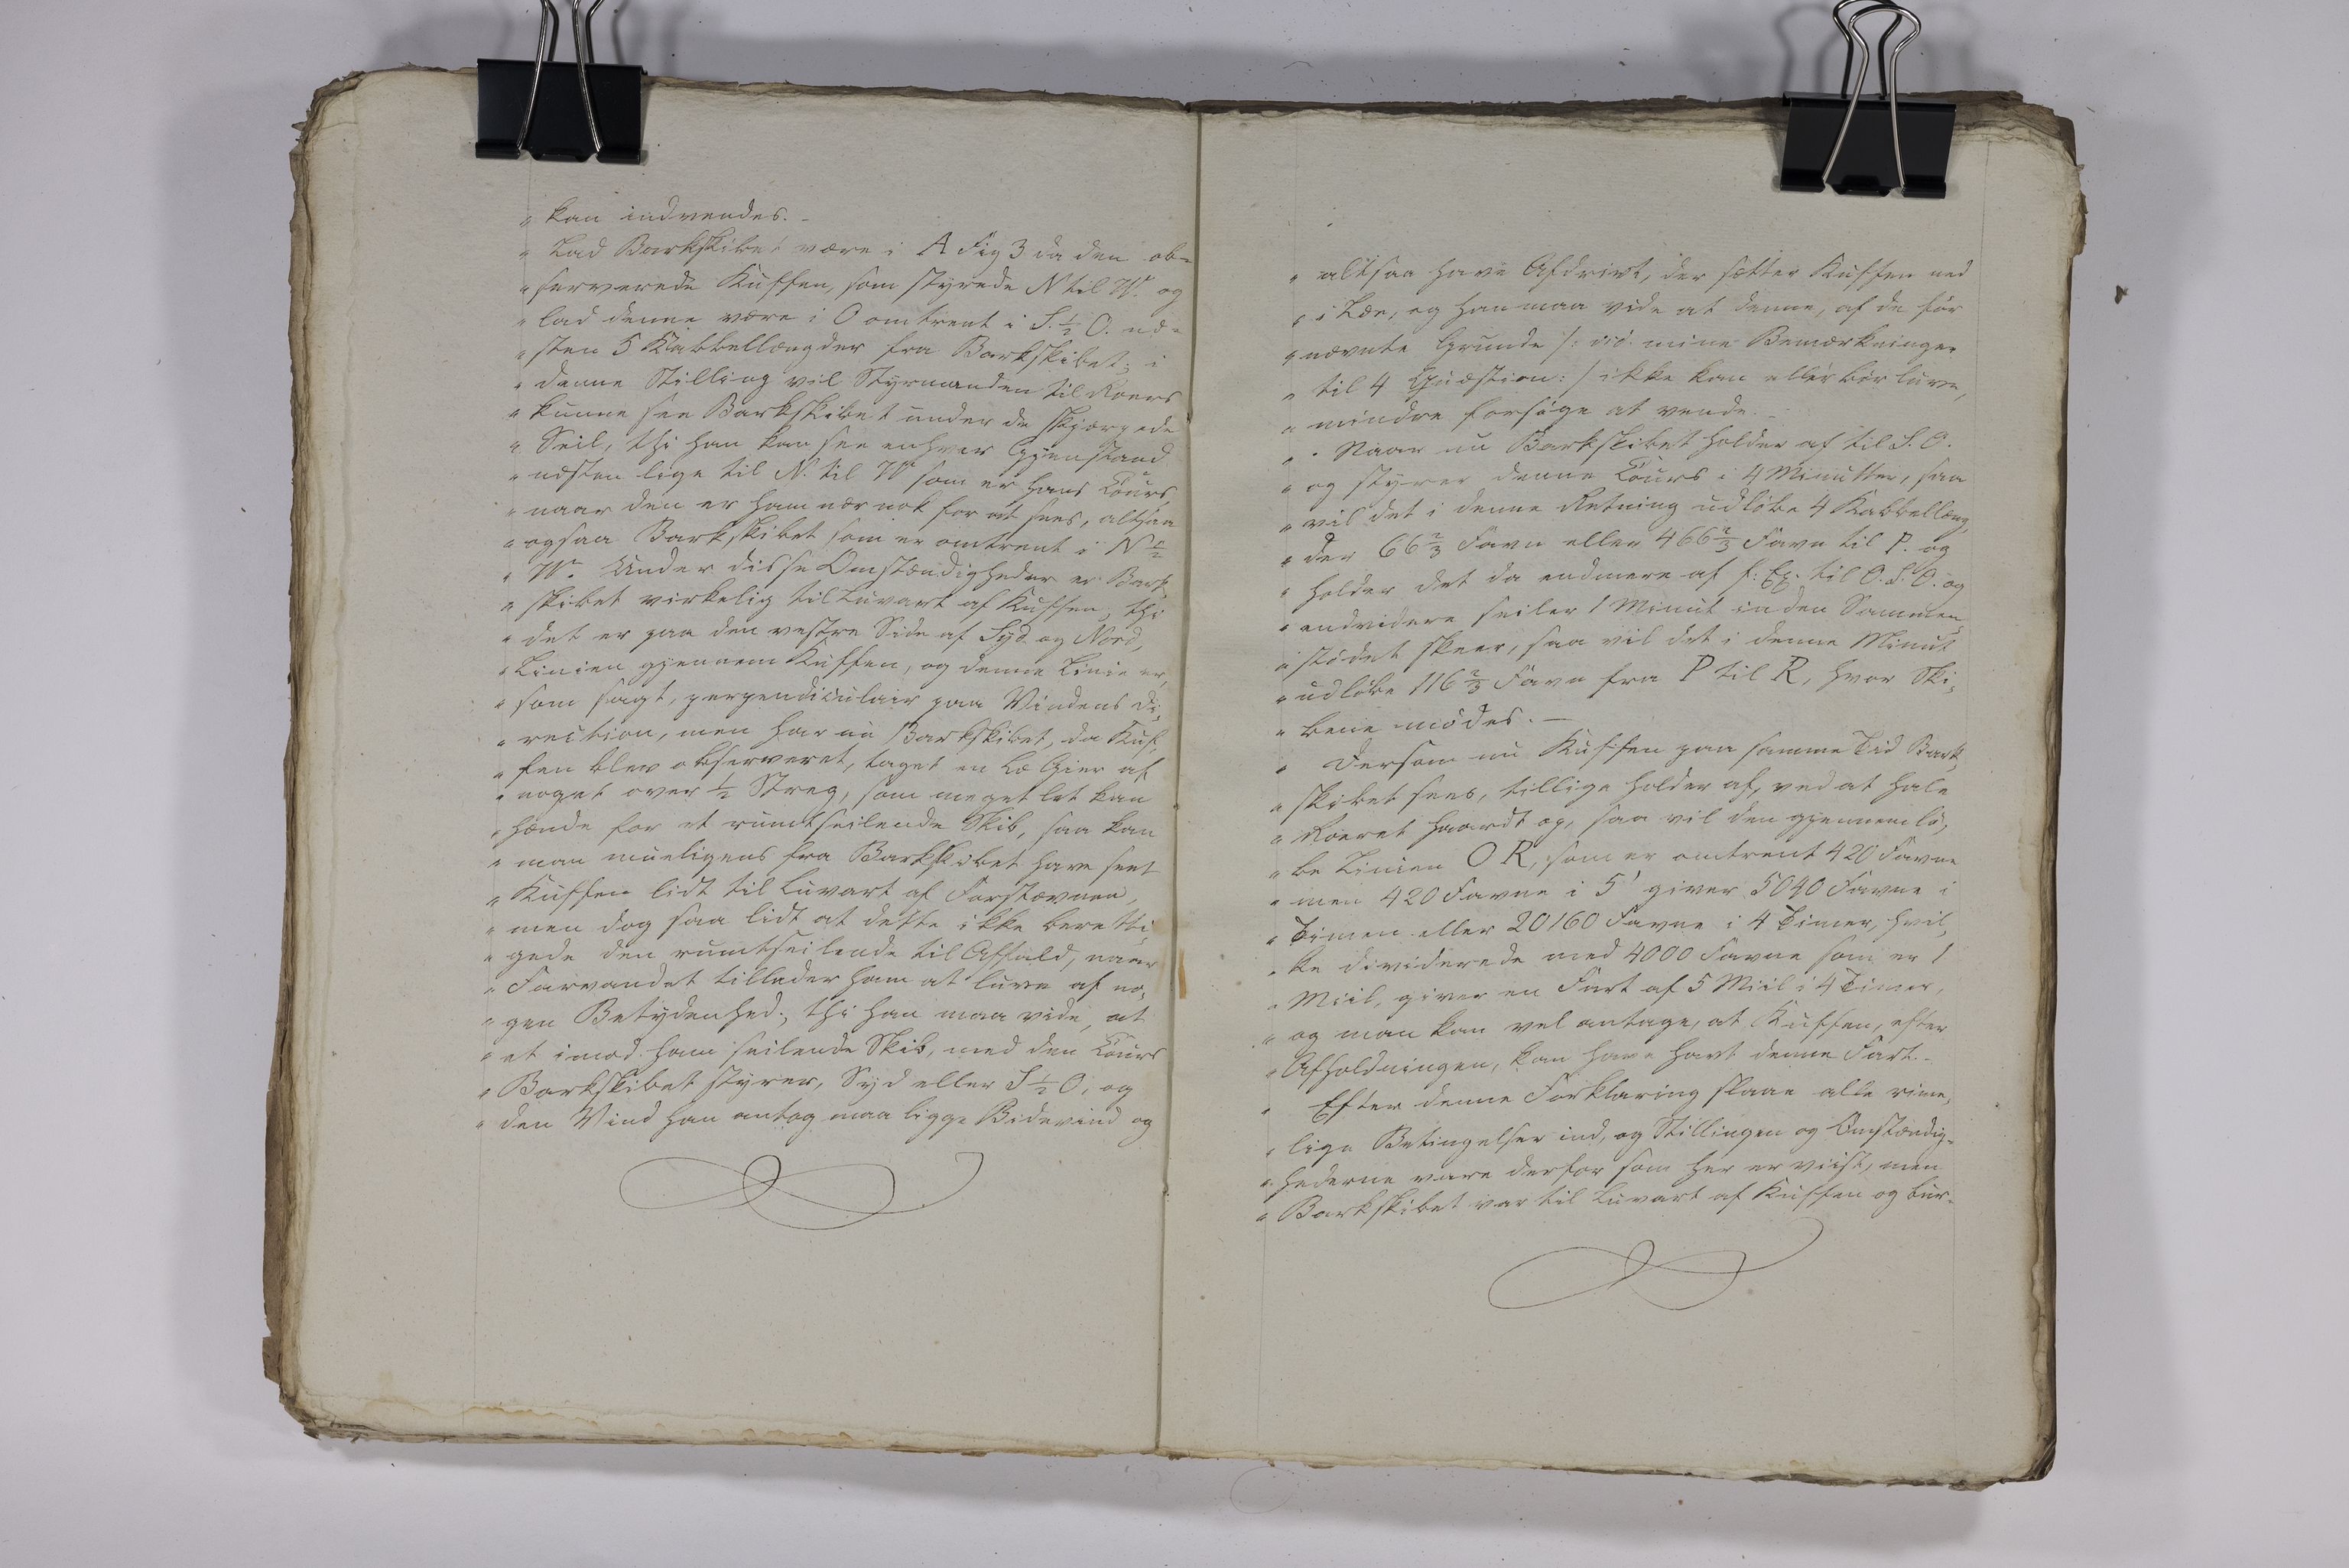 " kan indvendes. -
" Lad Barkskibet være i A Fig 3 da den ob-
" serverede Kuffen, som styrede N til W. og
" lad denne være i O omtrent i S. ½ O. næ-
" sten 5 Kabbellængder fra Barkskibet; i
" denne Stilling vil Styrmanden til Roers
" kunne see Barkskibet under de skjørpede
" Seil, thi han kan see enhver Gjenstand
" næsten lige til N. til W som er hans Cours,
" naar den er ham nær nok for at sees, altsaa
" ogsaa Barkskibet som er omtrent i N ½
" W. Under disse Omstændigheder er Bark,
" skibet virkelig til Luvart af Kuffen, thi
" det er paa den vestre Side af Syd og Nord,
" Linien gjennem Kuffen, og denne Linie er,
" som sagt, perpendiculair paa Vindens Di,
" rection, men har nu Barkskibet, da Kuf,
" fen blev observeret, taget en Læ Gier af
" noget over ½ Streg, som meget let kan
" hænde for et rumtseilende Skib, saa kan
" man mueligens fra Barkskibet have seet
" Kuffen lidt til Luvart af Forstævnen,
" men dog saa lidt at dette ikke beretti,
" gede den rumtseilende til Affald, naar
" Farvandet tillader ham at luve af no,
" gen Betydenhed; thi han maa vide, at
" et imod ham seilende Skib, med den Cours
" Barkskibet styrer, Syd eller S ½ O, og
" den Vind han antog maa ligge Bidevind og
" altsaa have Afdrivt, der sætter Kuffen ned
" i Læe, og han maa vide at denne, af de før
" nævnte Grunde /: vid. mine Bemærkninger
" til 4 Quæstion: / ikke kan eller bør luve,
" mindre forsøge at vende. -
" Naar nu Barkskibet holder af til S. O.
" og styrer denne Cours i 4 Minutter, saa
" vil det i denne Retning udløbe 4 Kabbellæng,
" der 66 ⅔ Favn eller 466 ⅔ Favn til P. og
" holder det da endmere af f: Ex: til O. S. O. og
" endvidere seiler 1 Minut inden Sammen,
" stødet skeer, saa vil det i denne Minut
" udløbe 116 ⅔ Favn fra P til R, hvor Ski,
" bene mødes. -
" Dersom nu Kuffen paa samme Tid Bark,
" skibet sees, tillige holder af, ved at hale
" Roeret haardt op, saa vil den gjennemlø,
" be Linien O R, som er omtrent 420 Favne
" men 420 Favne i 5' giver 5040 Favne i
" Timen eller 20160 Favne i 4 Timer, hvil,
" ke dividerede med 4000 Favne som er 1
" Miil, giver en Fart af 5 Miil i 4 Timer,
" og man kan vel antage, at Kuffen, efter
" Afholdningen, kan have havt denne Fart. -
" Efter denne Forklaring slaae alle rime,
" lige Betingelser ind, og Stillingen og Omstændig-
" hederne vare derfor som her er viist, men
" Barkskibet var til Luvart af Kuffen og bur-